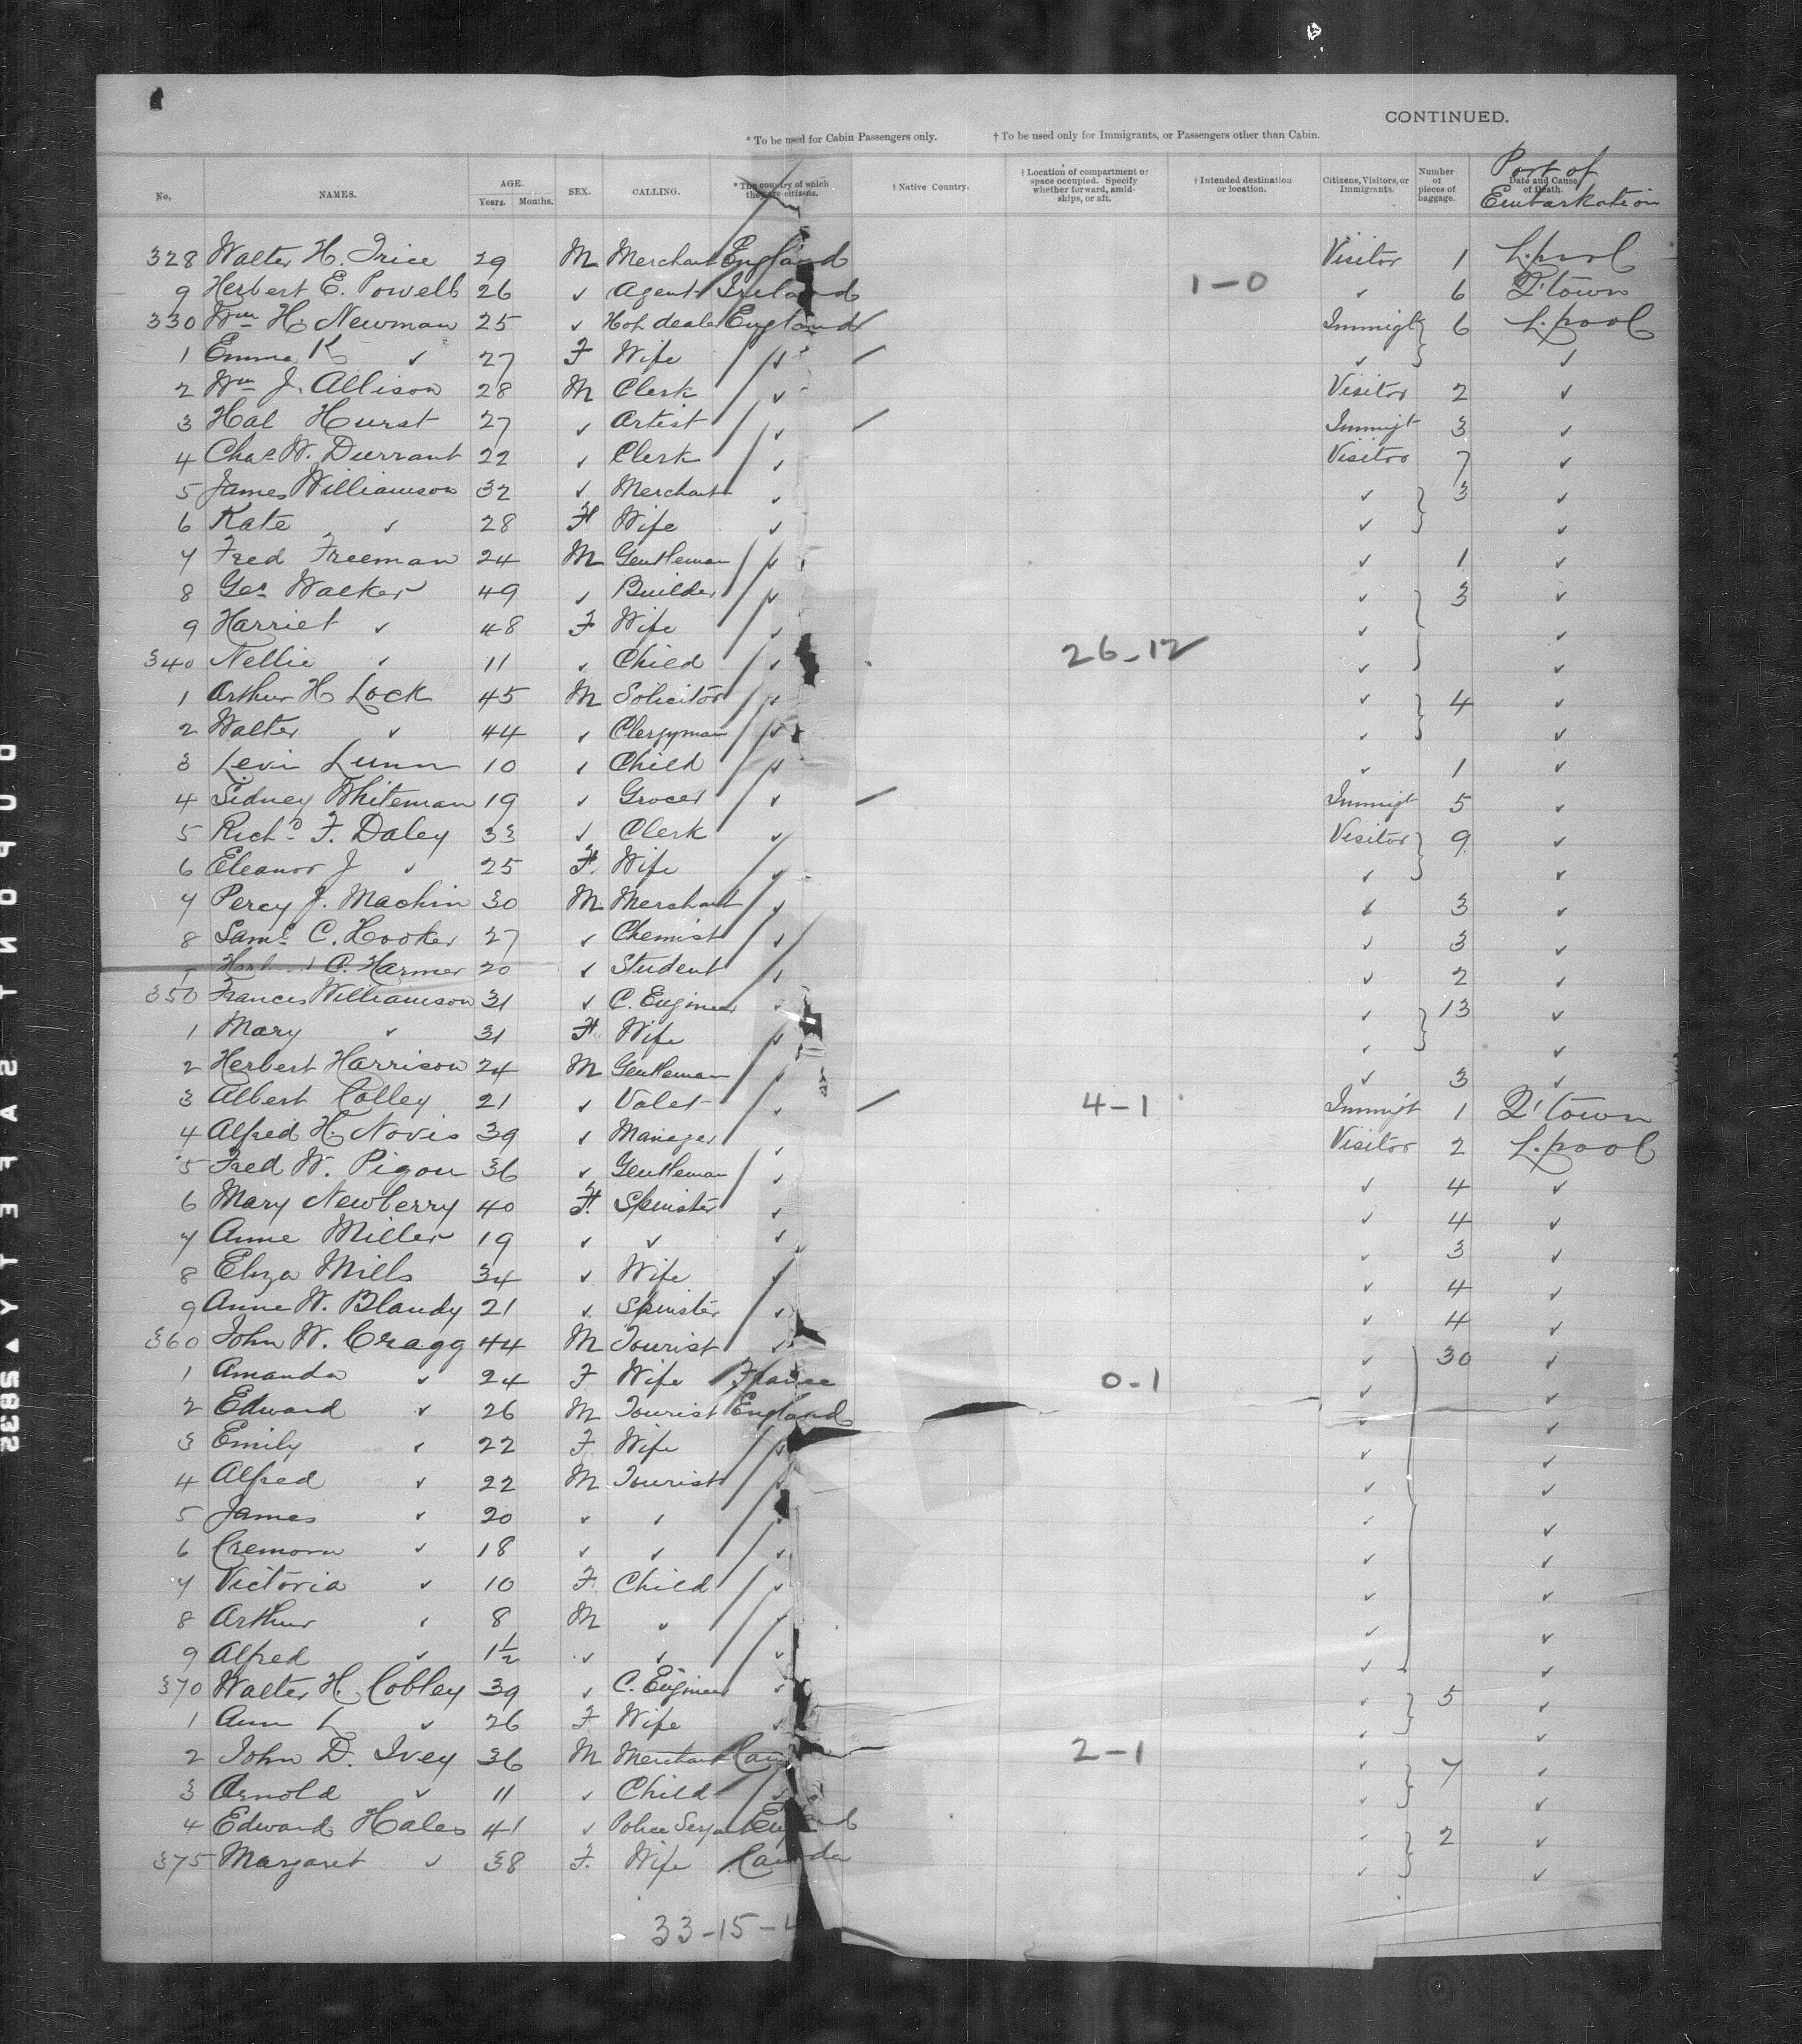 CONTINUED.
* To be used for Cabin Passengers only. † To be used only for Immigrants, or Passengers other than Cabin.
No. NAMES. AGE. Years. Months. SEX. CALLING. * The country of which they are citizens. † Native Country. † Location of compartment or space occupied. Specify whether forward, amidships, or aft. † Intended destination or location. Citizens, Visitors, or Immigrants. Number of pieces of baggage. Date and Cause of Death. Port of Embarkation
328 Walter H. Trice 29 M Merchant England Visitor 1 L.pool
9 Herbert E. Powell 26 ✓ Agent Ireland 1-0 ✓ 6 Q'town
330 Wm H. Newman 25 ✓ Hop dealer England Immigt 6 L.pool
1 Emma K ✓ 27 F Wife ✓ ✓ ✓
2 Wm J. Allison 28 M Clerk ✓ Visitor 2 ✓
3 Hal Hurst 27 ✓ Artist ✓ Immigt 3 ✓
4 Chas W. Durrant 22 ✓ Clerk ✓ Visitor 7 ✓
5 James Williamson 32 ✓ Merchant ✓ ✓ 3 ✓
6 Kate ✓ 28 F Wife ✓ ✓ ✓
7 Fred Freeman 24 M Gentleman ✓ ✓ 1 ✓
8 Geo Walker 49 ✓ Builder ✓ ✓ 3 ✓
9 Harriet ✓ 48 F Wife ✓ ✓ ✓
26-12
340 Nellie ✓ 11 ✓ Child ✓ ✓ ✓
1 Arthur H Lock 45 M Solicitor ✓ ✓ 4 ✓
2 Walter ✓ 44 ✓ Clergyman ✓ ✓ ✓
3 Levi Lunn 10 ✓ Child ✓ ✓ 1 ✓
4 Sidney Whiteman 19 ✓ Grocer ✓ Immigt 5 ✓
5 Richd F. Daley 33 ✓ Clerk ✓ Visitor 9 ✓
6 Eleanor J ✓ 25 F. Wife ✓ ✓ ✓
7 Percy J. Machin 30 M Merchant ✓ ✓ 3 ✓
8 Saml C. Hooker 27 ✓ Chemist ✓ ✓ 3 ✓
C. Harmer 20 ✓ Student ✓ ✓ 2 ✓
350 Frances Williamson 31 ✓ C. Engineer ✓ ✓ 13 ✓
1 Mary ✓ 31 F. Wife ✓ ✓ ✓
2 Herbert Harrison 24 M Gentleman ✓ ✓ 3 ✓
3 Albert Colley 21 ✓ Valet ✓ 4-1 Immigt 1 Q'town
4 Alfred H. Novis 39 ✓ Manager ✓ Visitor 2 L.pool
5 Fred W. Pigou 36 ✓ Gentleman ✓ ✓ 4 ✓
6 Mary Newberry 40 F. Spinster ✓ ✓ 4 ✓
7 Anne Miller 19 ✓ ✓ ✓ ✓ 3 ✓
8 Eliza Mills 34 ✓ Wife ✓ ✓ 4 ✓
9 Anne W. Blandy 21 ✓ Spinster ✓ ✓ 4 ✓
360 John W. Cragg 44 M Tourist ✓ ✓ 30 ✓
1 Amanda ✓ 24 F Wife France 0-1 ✓ ✓
2 Edward ✓ 26 M Tourist England ✓ ✓
3 Emily ✓ 22 F Wife ✓ ✓ ✓
4 Alfred ✓ 22 M Tourist ✓ ✓ ✓
5 James ✓ 20 ✓ ✓ ✓ ✓ ✓
6 Cremorn ✓ 18 ✓ ✓ ✓ ✓ ✓
7 Victoria ✓ 10 F Child ✓ ✓ ✓
8 Arthur ✓ 8 M ✓ ✓ ✓ ✓
9 Alfred ✓ 1½ ✓ ✓ ✓ ✓ ✓
370 Walter H. Cobley 39 ✓ C. Engineer ✓ ✓ 5 ✓
1 Ann L ✓ 26 F Wife ✓ ✓ ✓
2 John D. Ivey 36 M Merchant 2-1 ✓ 7 ✓
3 Arnold ✓ 11 ✓ Child ✓ ✓ ✓
4 Edward Hales 41 ✓ Police Serjant England ✓ 2 ✓
375 Margaret ✓ 38 F. Wife Canada ✓ ✓
33-15-4